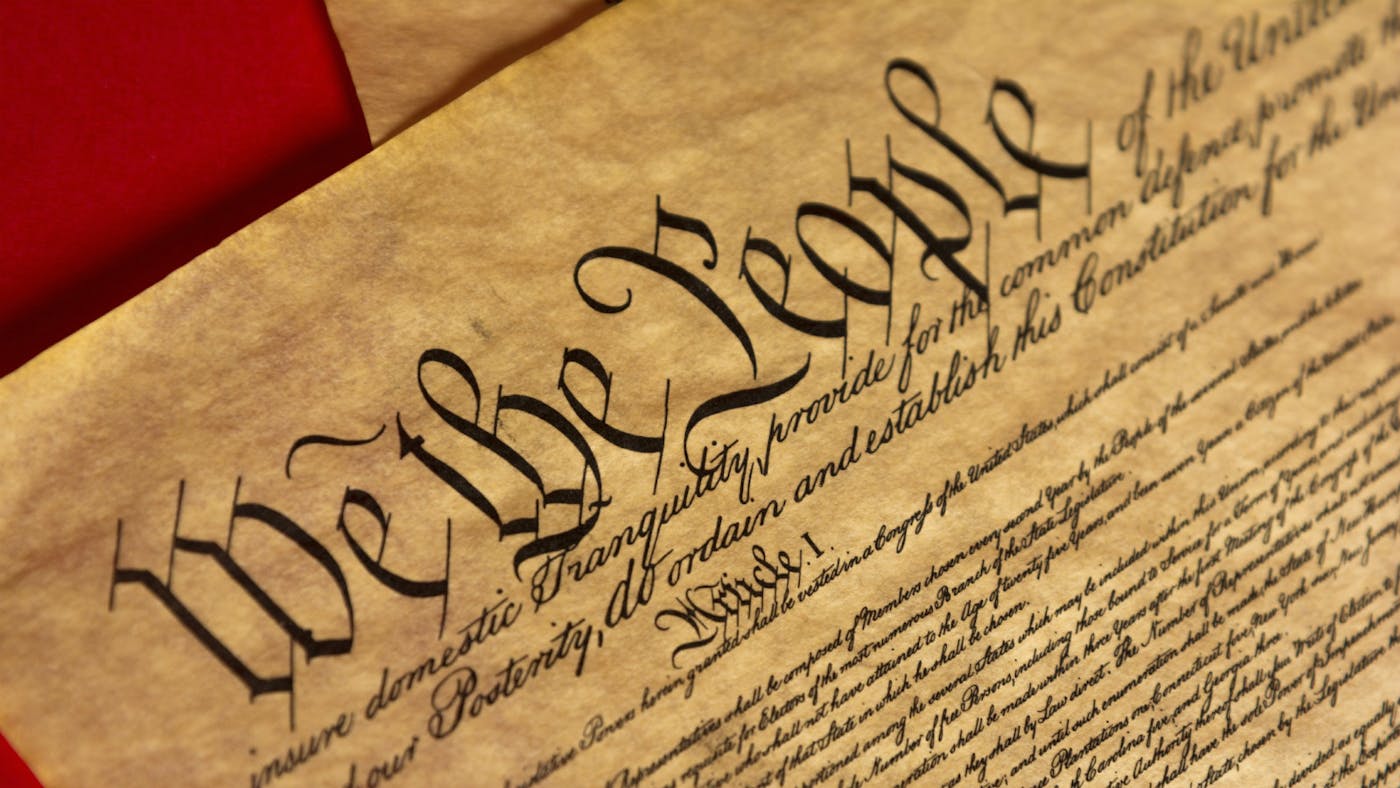 We the People of the United
insure domestic Tranquility, provide for the common defence, promote
our Posterity, do ordain and establish this Constitution for the
Article I.
Powers herein granted shall be vested in a Congress of the United States, which shall consist of a Senate and House
Representatives shall be composed of Members chosen every second Year by the People of the several States, and the
requisite for Electors of the most numerous Branch of the State Legislature.
who shall not have attained to the Age of twenty five Years, and been seven Years a Citizen of the United States,
of that State in which he shall be chosen.
among the several States which may be included within this Union, according to their
Number of free Persons, including those bound to Service for a Term of Years, and
shall be made within three Years after the first Meeting of the Congress of the
as they shall by Law direct. The Number of Representatives shall not
and until such enumeration shall be made, the State of New
Plantations one, Connecticut five, New York six, New
Carolina five, and Georgia three.
Authority thereof shall issue Writs of Election
shall have the sole Power of
State, chosen by the Legislature
divided as equally